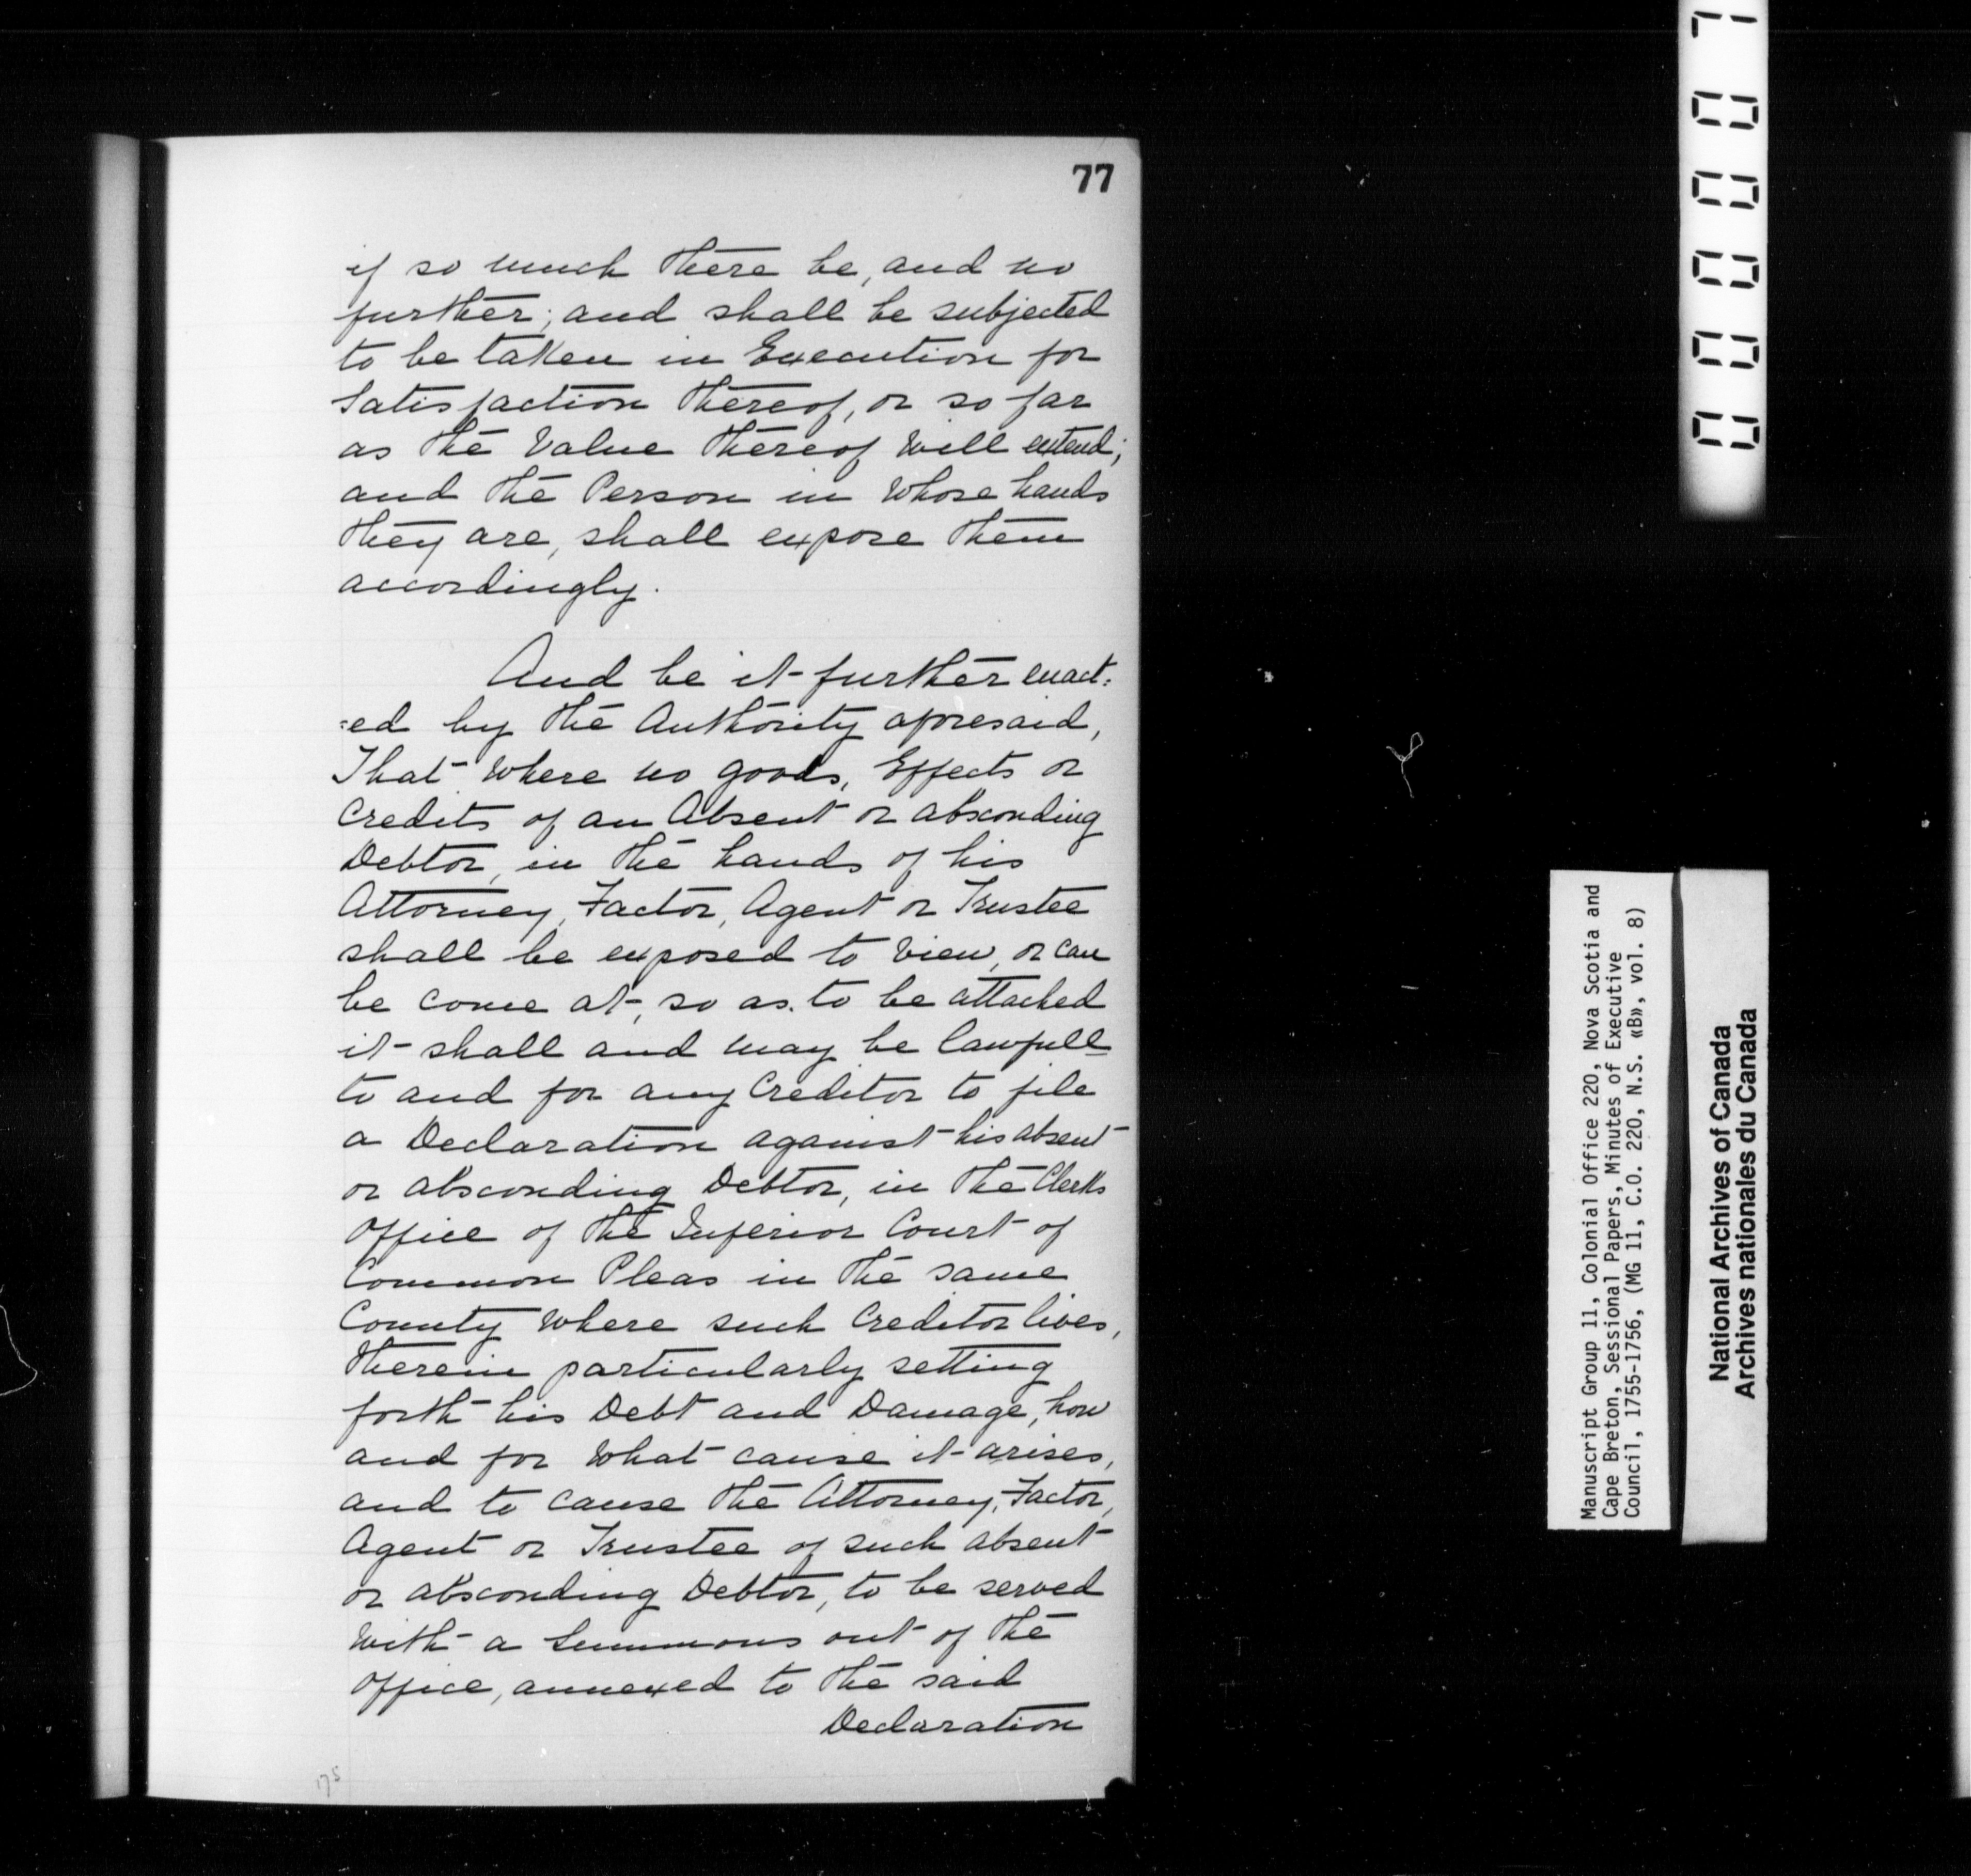 77
if so much there be, and no
further; and shall be subjected
to be taken in Execution for
Satisfaction thereof, or so far
as the Value thereof will extend;
and the Person in whose hands
they are, shall expose them
accordingly.
And be it further enact:
:ed by the Authority aforesaid,
That where no goods, Effects or
Credits of an Absent or absconding
Debtor, in the hands of his
Attorney, Factor, Agent or Trustee
shall be exposed to view, or can
be come at, so as to be attached
it shall and may be lawfull
to and for any Creditor to file
a Declaration against his absent
or absconding Debtor, in the Clerks
Office of the Inferior Court of
Common Pleas in the same
County where such Creditor lives,
therein particularly setting
forth his Debt and Damage, how
and for what cause it arises,
and to cause the Attorney, Factor,
Agent or Trustee of such absent
or absconding Debtor, to be served
with a Summons out of the
Office, annexed to the said
Declaration
175
Manuscript Group 11, Colonial Office 220, Nova Scotia and
Cape Breton, Sessional Papers, Minutes of Executive
Council, 1755-1756, (MG 11, C.O. 220, N.S. «B», vol. 8)
National Archives of Canada
Archives nationales du Canada